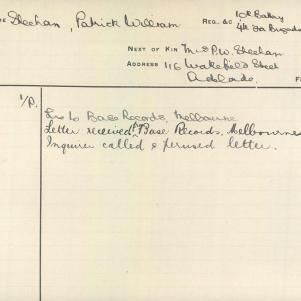 Sheehan, Patrick William
REG. &c 10th Battery
4th Fa Brigade
NEXT OF KIN Mrs P.W. Sheehan
ADDRESS 116 Wakefield Street
Adelade.
1/P.
to Base Records, Melbourne
Letter received Base Records, Melbourne
Inquirer called & perused letter.